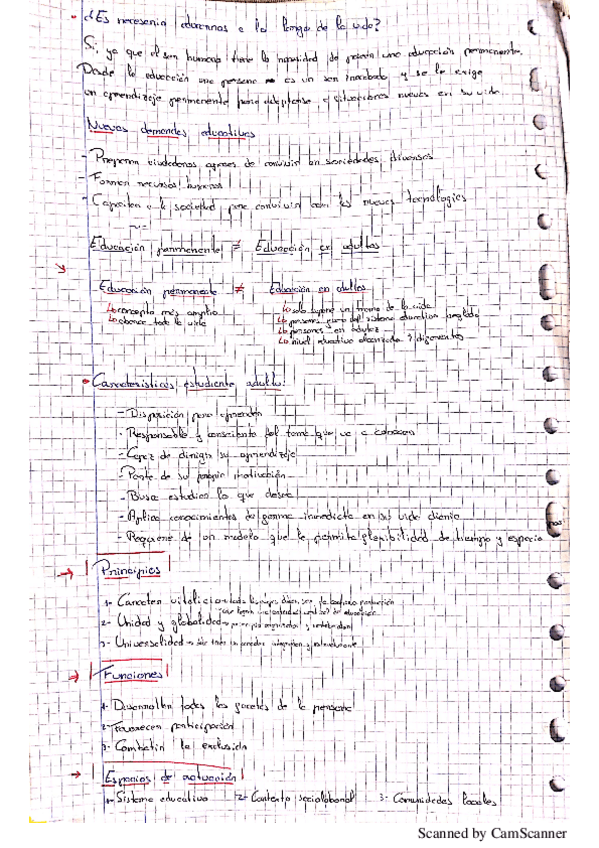 ¿Es necesario educarnos a lo largo de la vida?
Si, ya que el ser humano tiene la necesidad de una educación permanente.
Desde la educación una persona es un ser inacabado y se le exige
un aprendizaje permanente para adaptarse a situaciones nuevas en su vida.
Nuevas demandas educativas
- Preparar ciudadanos capaces de convivir en sociedades diversas
- Formar recursos humanos
- Capacitar a la sociedad para convivir con las nuevas tecnologías
Educación permanente ≠ Educación en adultos
Educación permanente ≠ Educación en adultos
concepto más amplio
abarca toda la vida
solo supone un tramo de la vida
personas fuera del sistema educativo
personas en adultez
nivel educativo diferentes
Características estudiante adulto:
- Disposición para aprender
- Responsable y consciente del tema que va a conocer
- Capaz de dirigir su aprendizaje
- Parte de su propia motivación
- Busca estudiar lo que desea
- Aplica conocimientos de forma inmediata en su vida diaria
- Requiere de un modelo que le permita flexibilidad de tiempo y espacio
Principios
1- Caracter vitalicio
2- Unidad y globalidad
3- Universalidad
Funciones
1- Desarrollar todas las facetas de la persona
2- Favorecen participación
3- Combatir la exclusión
Espacios de actuación
1- Sistema educativo 2- Contexto sociolaboral 3- Comunidades locales
Scanned by CamScanner